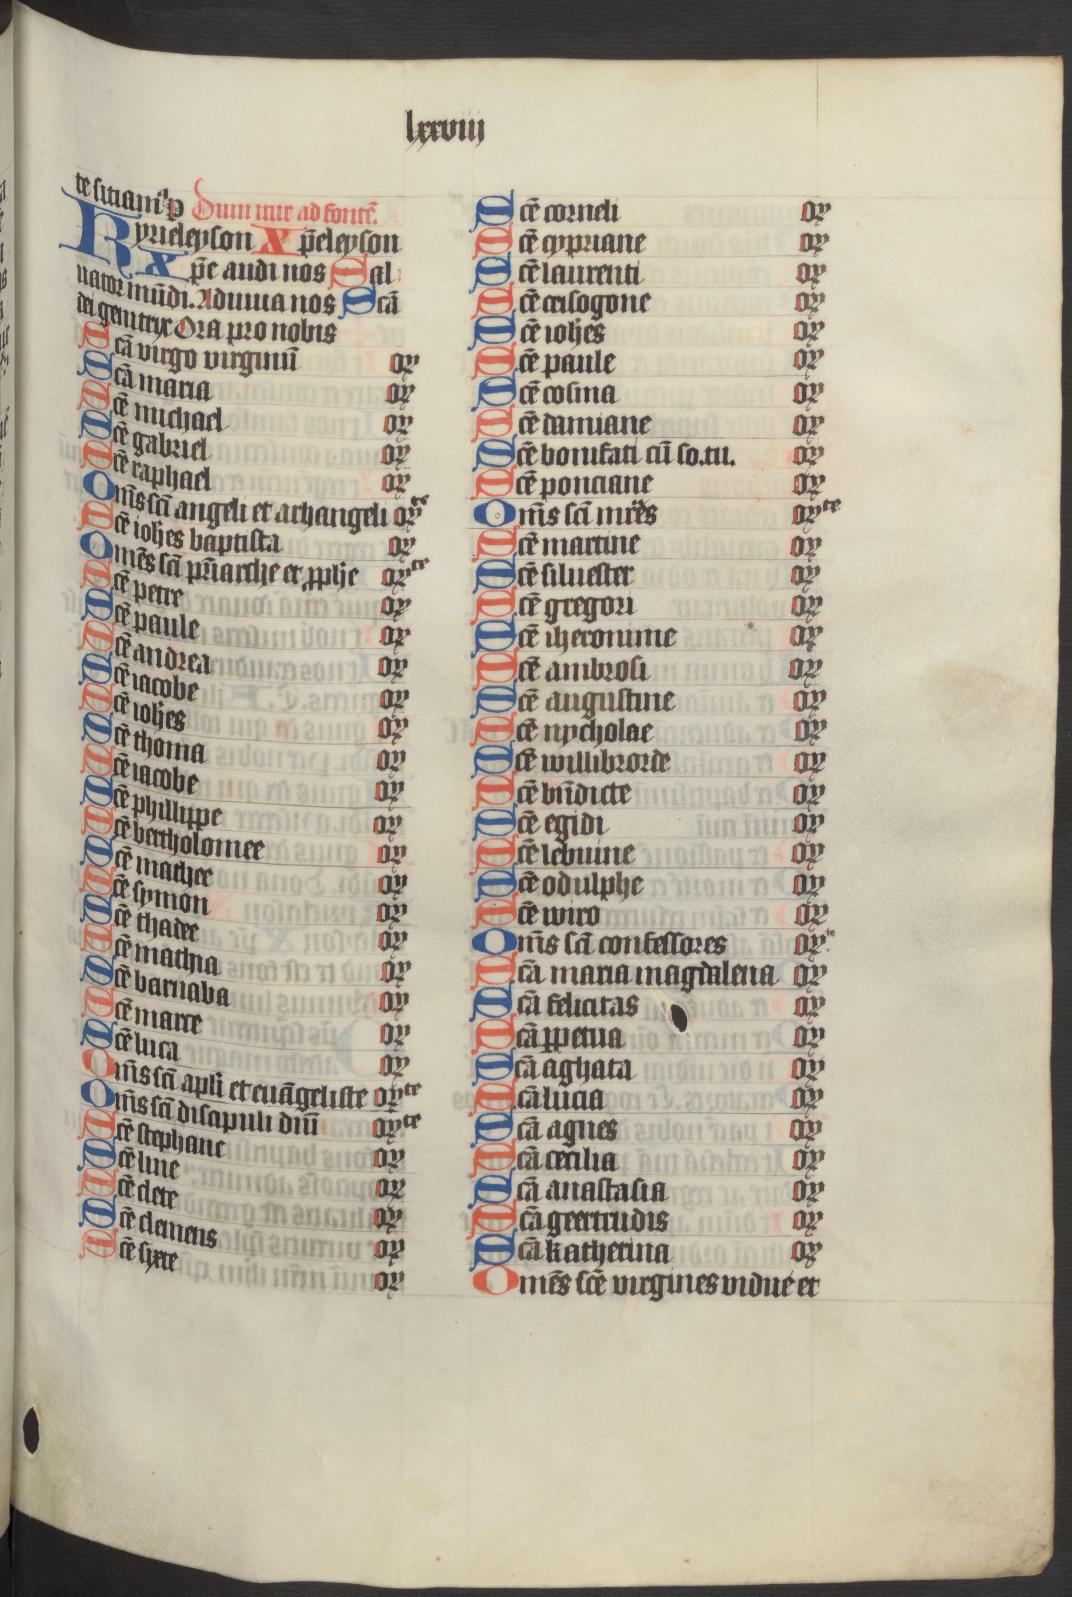 lxxviii
te sitiam⁹ p Dum itur ad fontē.
Kyrieleyson Xp̄eleyson
Xp̄e audi nos Sal
uator mūdi. Adiuua nos Scā
dei genitrix Ora pro nobis
Scā virgo virginū or
Scā maria or
Scē michael or
Scē gabriel or
Scē raphael or
Om̄s scī angeli et archangeli orᵗᵉ
Scē ioħes baptista or
Omēs scī pr̄iarche et ꝓphe orᵗᵉ
Scē petre or
Scē paule or
Scē andrea or
Scē iacobe or
Scē ioħes or
Scē thoma or
Scē iacobe or
Scē phillippe or
Scē bertholomee or
Scē mathee or
Scē symon or
Scē thadee or
Scē mathia or
Scē barnaba or
Scē marce or
Scē luca or
Om̄s scī apl̄i et euāgeliste orᵗᵉ
Om̄s scī discipuli dn̄i orᵗᵉ
Scē stephane or
Scē line or
Scē clete or
Scē clemens or
Scē sixte or
Scē corneli or
Scē cypriane or
Scē laurenti or
Scē crisogone or
Scē ioħes or
Scē paule or
Scē cosma or
Scē damiane or
Scē bonifati cū so. tu. or
Scē ponciane or
Om̄s scī mr̄es orᵗᵉ
Scē martine or
Scē siluester or
Scē gregori or
Scē iheronime or
Scē ambrosi or
Scē augustine or
Scē nycholae or
Scē willibrorde or
Scē bn̄dicte or
Scē egidi or
Scē lebuine or
Scē odulphe or
Scē wiro or
Om̄s scī confessores orᵗᵉ
Scā maria magdalena or
Scā felicitas or
Scā ꝑpetua or
Scā aghata or
Scā lucia or
Scā agnes or
Scā cecilia or
Scā anastasia or
Scā geertrudis or
Scā katherina or
Omēs scē virgines vidue et